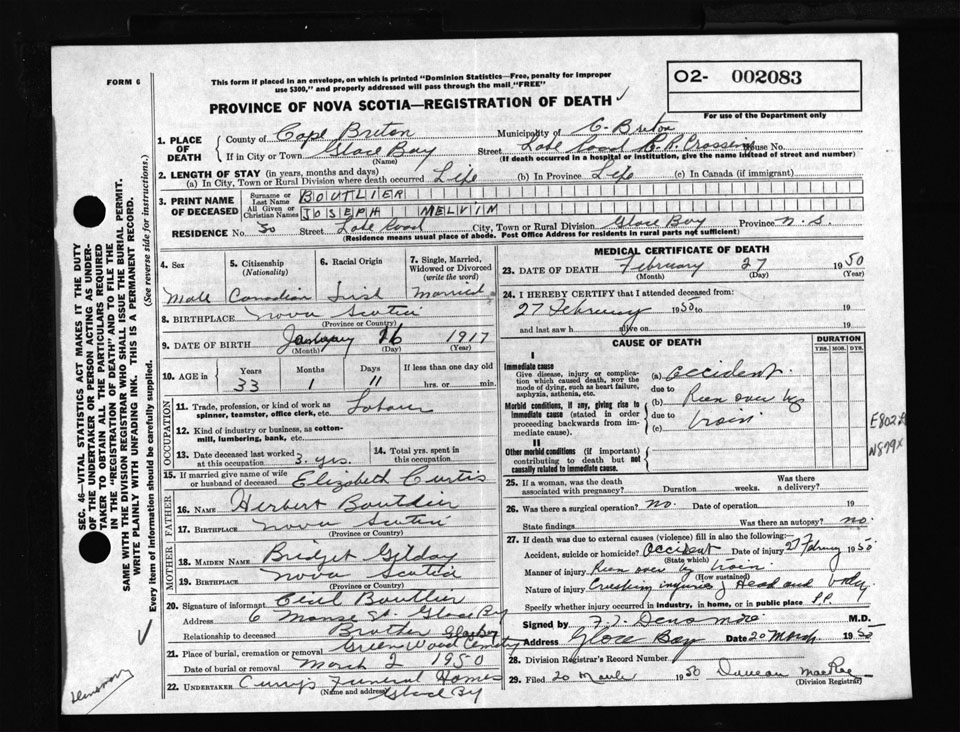 FORM 6
This form if placed in an envelope, on which is printed "Dominion Statistics—Free, penalty for improper
use $300," and properly addressed will pass through the mail "FREE"
O2- 002083
For use of the Department only
PROVINCE OF NOVA SCOTIA—REGISTRATION OF DEATH ✓
SEC. 46—VITAL STATISTICS ACT MAKES IT THE DUTY
OF THE UNDERTAKER OR PERSON ACTING AS UNDER-
TAKER TO OBTAIN ALL THE PARTICULARS REQUIRED
IN THE "REGISTRATION OF DEATH" AND TO FILE THE
SAME WITH THE DIVISION REGISTRAR WHO SHALL ISSUE THE BURIAL PERMIT.
WRITE PLAINLY WITH UNFADING INK. THIS IS A PERMANENT RECORD.
Every item of Information should be carefully supplied. (See reverse side for instructions.)
1. PLACE OF DEATH
County of Cape Breton Municipality of C. Breton
If in City or Town Glace Bay Street Lake Road Crossing House No.
(Name) (If death occurred in a hospital or institution, give the name instead of street and number)
2. LENGTH OF STAY (in years, months and days)
(a) In City, Town or Rural Division where death occurred Life (b) In Province Life (c) In Canada (if immigrant)
3. PRINT NAME OF DECEASED
Surname or Last Name BOUTLIER
All Given or Christian Names JOSEPH MELVIN
RESIDENCE No. 30 Street Lake Road City, Town or Rural Division Glace Bay Province N.S.
(Residence means usual place of abode. Post Office Address for residents in rural parts not sufficient)
4. Sex 5. Citizenship (Nationality) 6. Racial Origin 7. Single, Married, Widowed or Divorced (write the word)
Male Canadian Irish Married
8. BIRTHPLACE Nova Scotia
(Province or Country)
9. DATE OF BIRTH January 16 1917
(Month) (Day) (Year)
10. AGE in Years Months Days If less than one day old
33 1 11 hrs. or min.
OCCUPATION
11. Trade, profession, or kind of work as spinner, teamster, office clerk, etc. Labour
12. Kind of industry or business, as cotton-mill, lumbering, bank, etc.
13. Date deceased last worked at this occupation 3. yrs. 14. Total yrs. spent in this occupation
15. If married give name of wife or husband of deceased Elizabeth Curtis
FATHER
16. Name Herbert Boutlier
17. Birthplace Nova Scotia
(Province or Country)
MOTHER
18. Maiden Name Bridget Gilday
19. Birthplace Nova Scotia
(Province or Country)
20. Signature of informant Cecil Boutlier
Address 6 Manse St. Glace Bay
Relationship to deceased Brother Glace Bay
21. Place of burial, cremation or removal Green Wood Cemetry
Date of burial or removal March 2 1950
22. UNDERTAKER Curry's Funeral Homes
(Name and address) Glace Bay
MEDICAL CERTIFICATE OF DEATH
23. DATE OF DEATH February 27 1950
(Month) (Day) (Year)
24. I HEREBY CERTIFY that I attended deceased from:
27 February 1950 to 19
and last saw h alive on 19
CAUSE OF DEATH DURATION
YRS. MOS. DYS.
I
Immediate cause
Give disease, injury or complication which caused death, NOT the mode of dying, such as heart failure, asphyxia, asthenia, etc.
(a) accident.
due to
Morbid conditions, if any, giving rise to immediate cause (stated in order proceeding backwards from immediate cause).
(b) Run over by
due to
(c) train
E802
N879X
II
Other morbid conditions (if important) contributing to death but not causally related to immediate cause.
25. If a woman, was the death associated with pregnancy? Duration weeks. Was there a delivery?
26. Was there a surgical operation? no. Date of operation 19
State findings Was there an autopsy? no.
27. If death was due to external causes (violence) fill in also the following:
Accident, suicide or homicide? Accident Date of injury 27 February 1950
(State which)
Manner of injury Run over by train
(How sustained)
Nature of injury Crushing injuries of Head and body
Specify whether injury occurred in industry, in home, or in public place P.P.
Signed by Densmore M.D.
Address Glace Bay Date 20 March 1950
28. Division Registrar's Record Number
29. Filed 20 March 1950 Duncan MacRae
(Division Registrar)